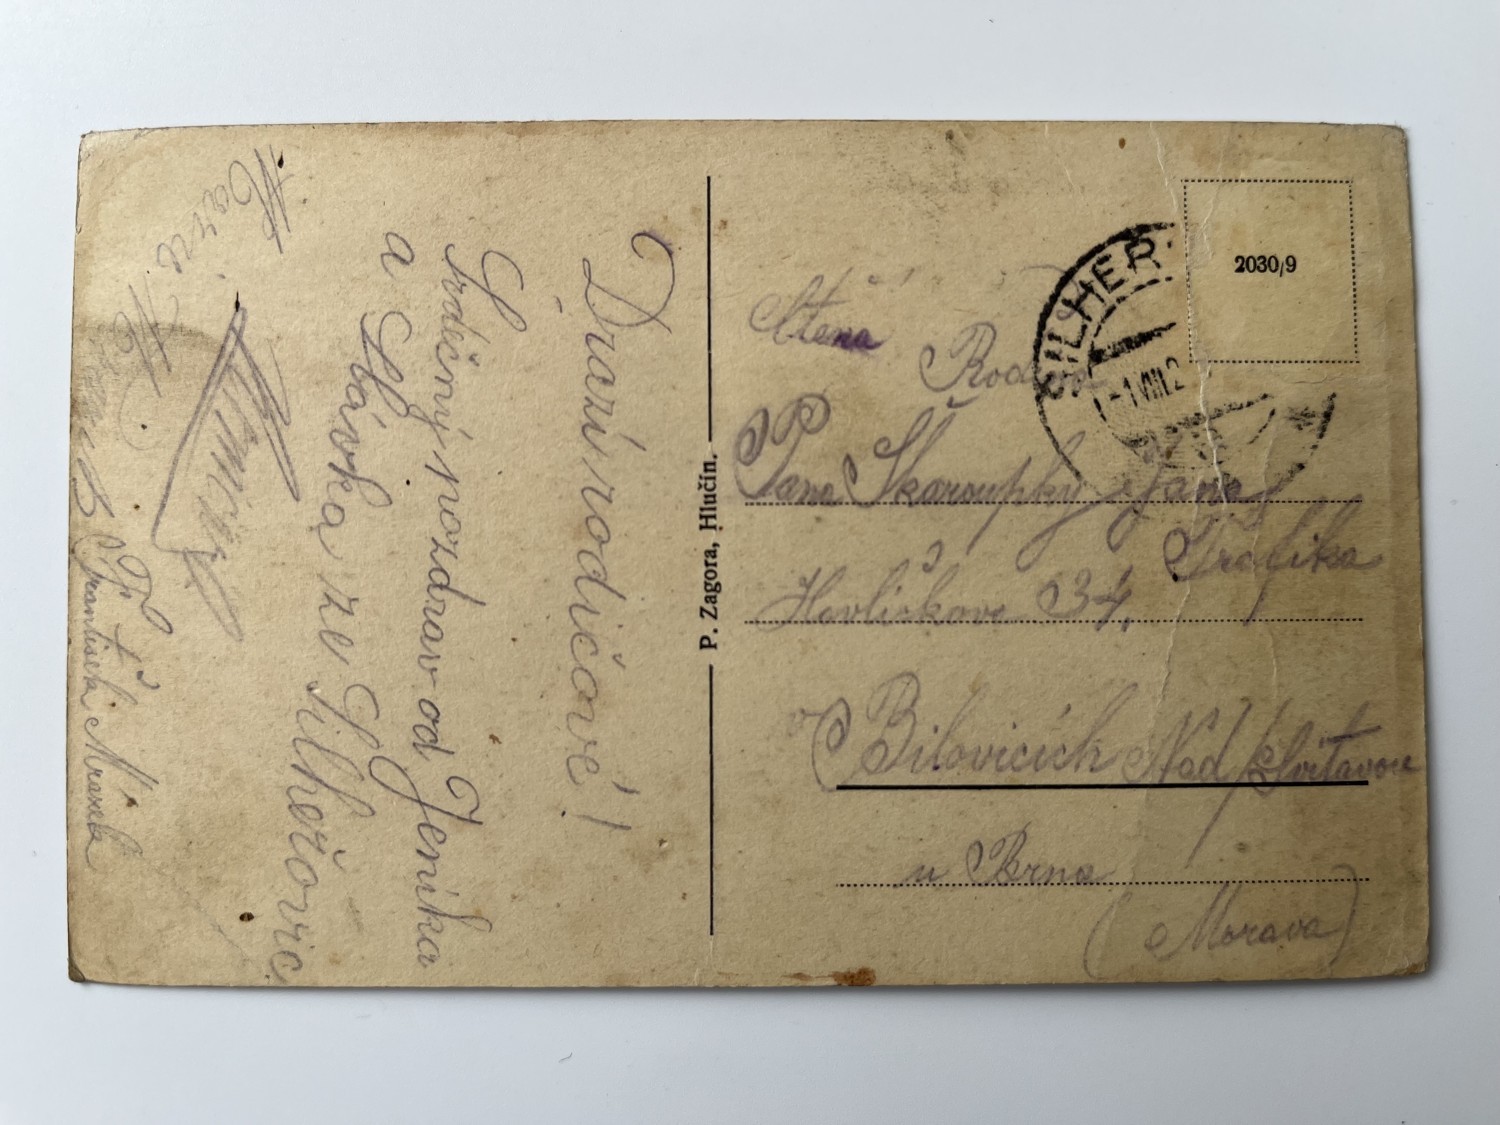 Drazí rodičové!
Srdečný pozdrav od Jeníka
a Slávka ze Šilheřovic
Františka Mrázela
P. Zagora, Hlučín.
2030/9
ŠILHER
-1.VIII.2
Ctěná
Rodina
Pana Skaroupky Jana
Trafika
Havlíčkova 34.
v Bilovicích Nad/Svitavou
u Brna
(Morava)